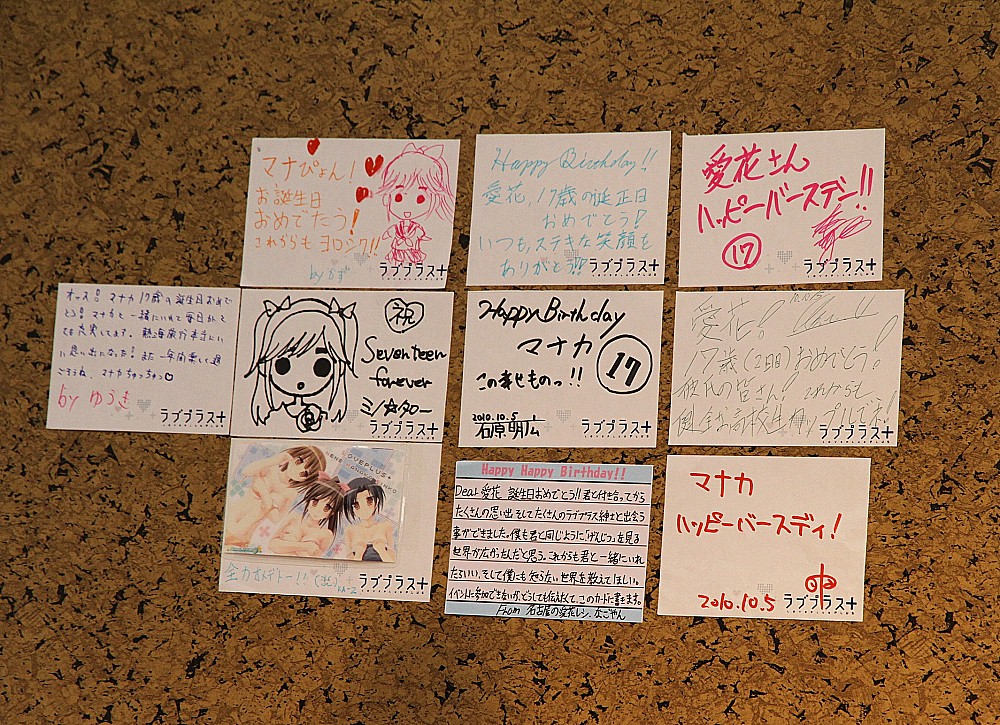 マナぴょん!
お誕生日
おめでたう!
これからも ヨロシク!!
by かず
ラブプラス+
Happy Birthday!!
愛花、17歳の誕生日
おめでとう!
いつも、ステキな笑顔を
ありがとう!!
ラブプラス+
愛花さん
ハッピーバースデー!!
17
ラブプラス+
オッス! マナカ 17歳の誕生日おめで
とう! マナカと一緒にいれて毎日がと
ても充実してます。熱海旅行本当にい
い思い出になった! また一年間楽しく過
ごそうね、マナカちゅっちゅ♡
by ゆうき
ラブプラス+
祝
Seventeen
forever
ミノ☆タロー
ラブプラス+
Happy Birthday
マナカ
17
この幸せものっ!!
2010.10.5
石原明広
ラブプラス+
愛花!
17歳(2回目)おめでとう!
彼氏の皆さん! これからも
健全な高校生カップルでネ!
ラブプラス+
LOVEPLUS+
全力オメデトー!!
ラブプラス+
Happy Happy Birthday!!
Dear 愛花 誕生日おめでとう!! 君と付き合ってから
たくさんの思い出、そしてたくさんのラブプラス紳士と出会う
事ができました。僕も君と同じように「げんじつ」を見る
世界が広がったんだと思う。これからも君と一緒にいれ
たらいい、そして僕にも知らない世界を教えてほしい。
イベントに参加できないが、どうしても伝えたくて、このカードに書きます。
From 名古屋の愛花レシ、なごやん
マナカ
ハッピーバースディ!
2010.10.5
ラブプラス+